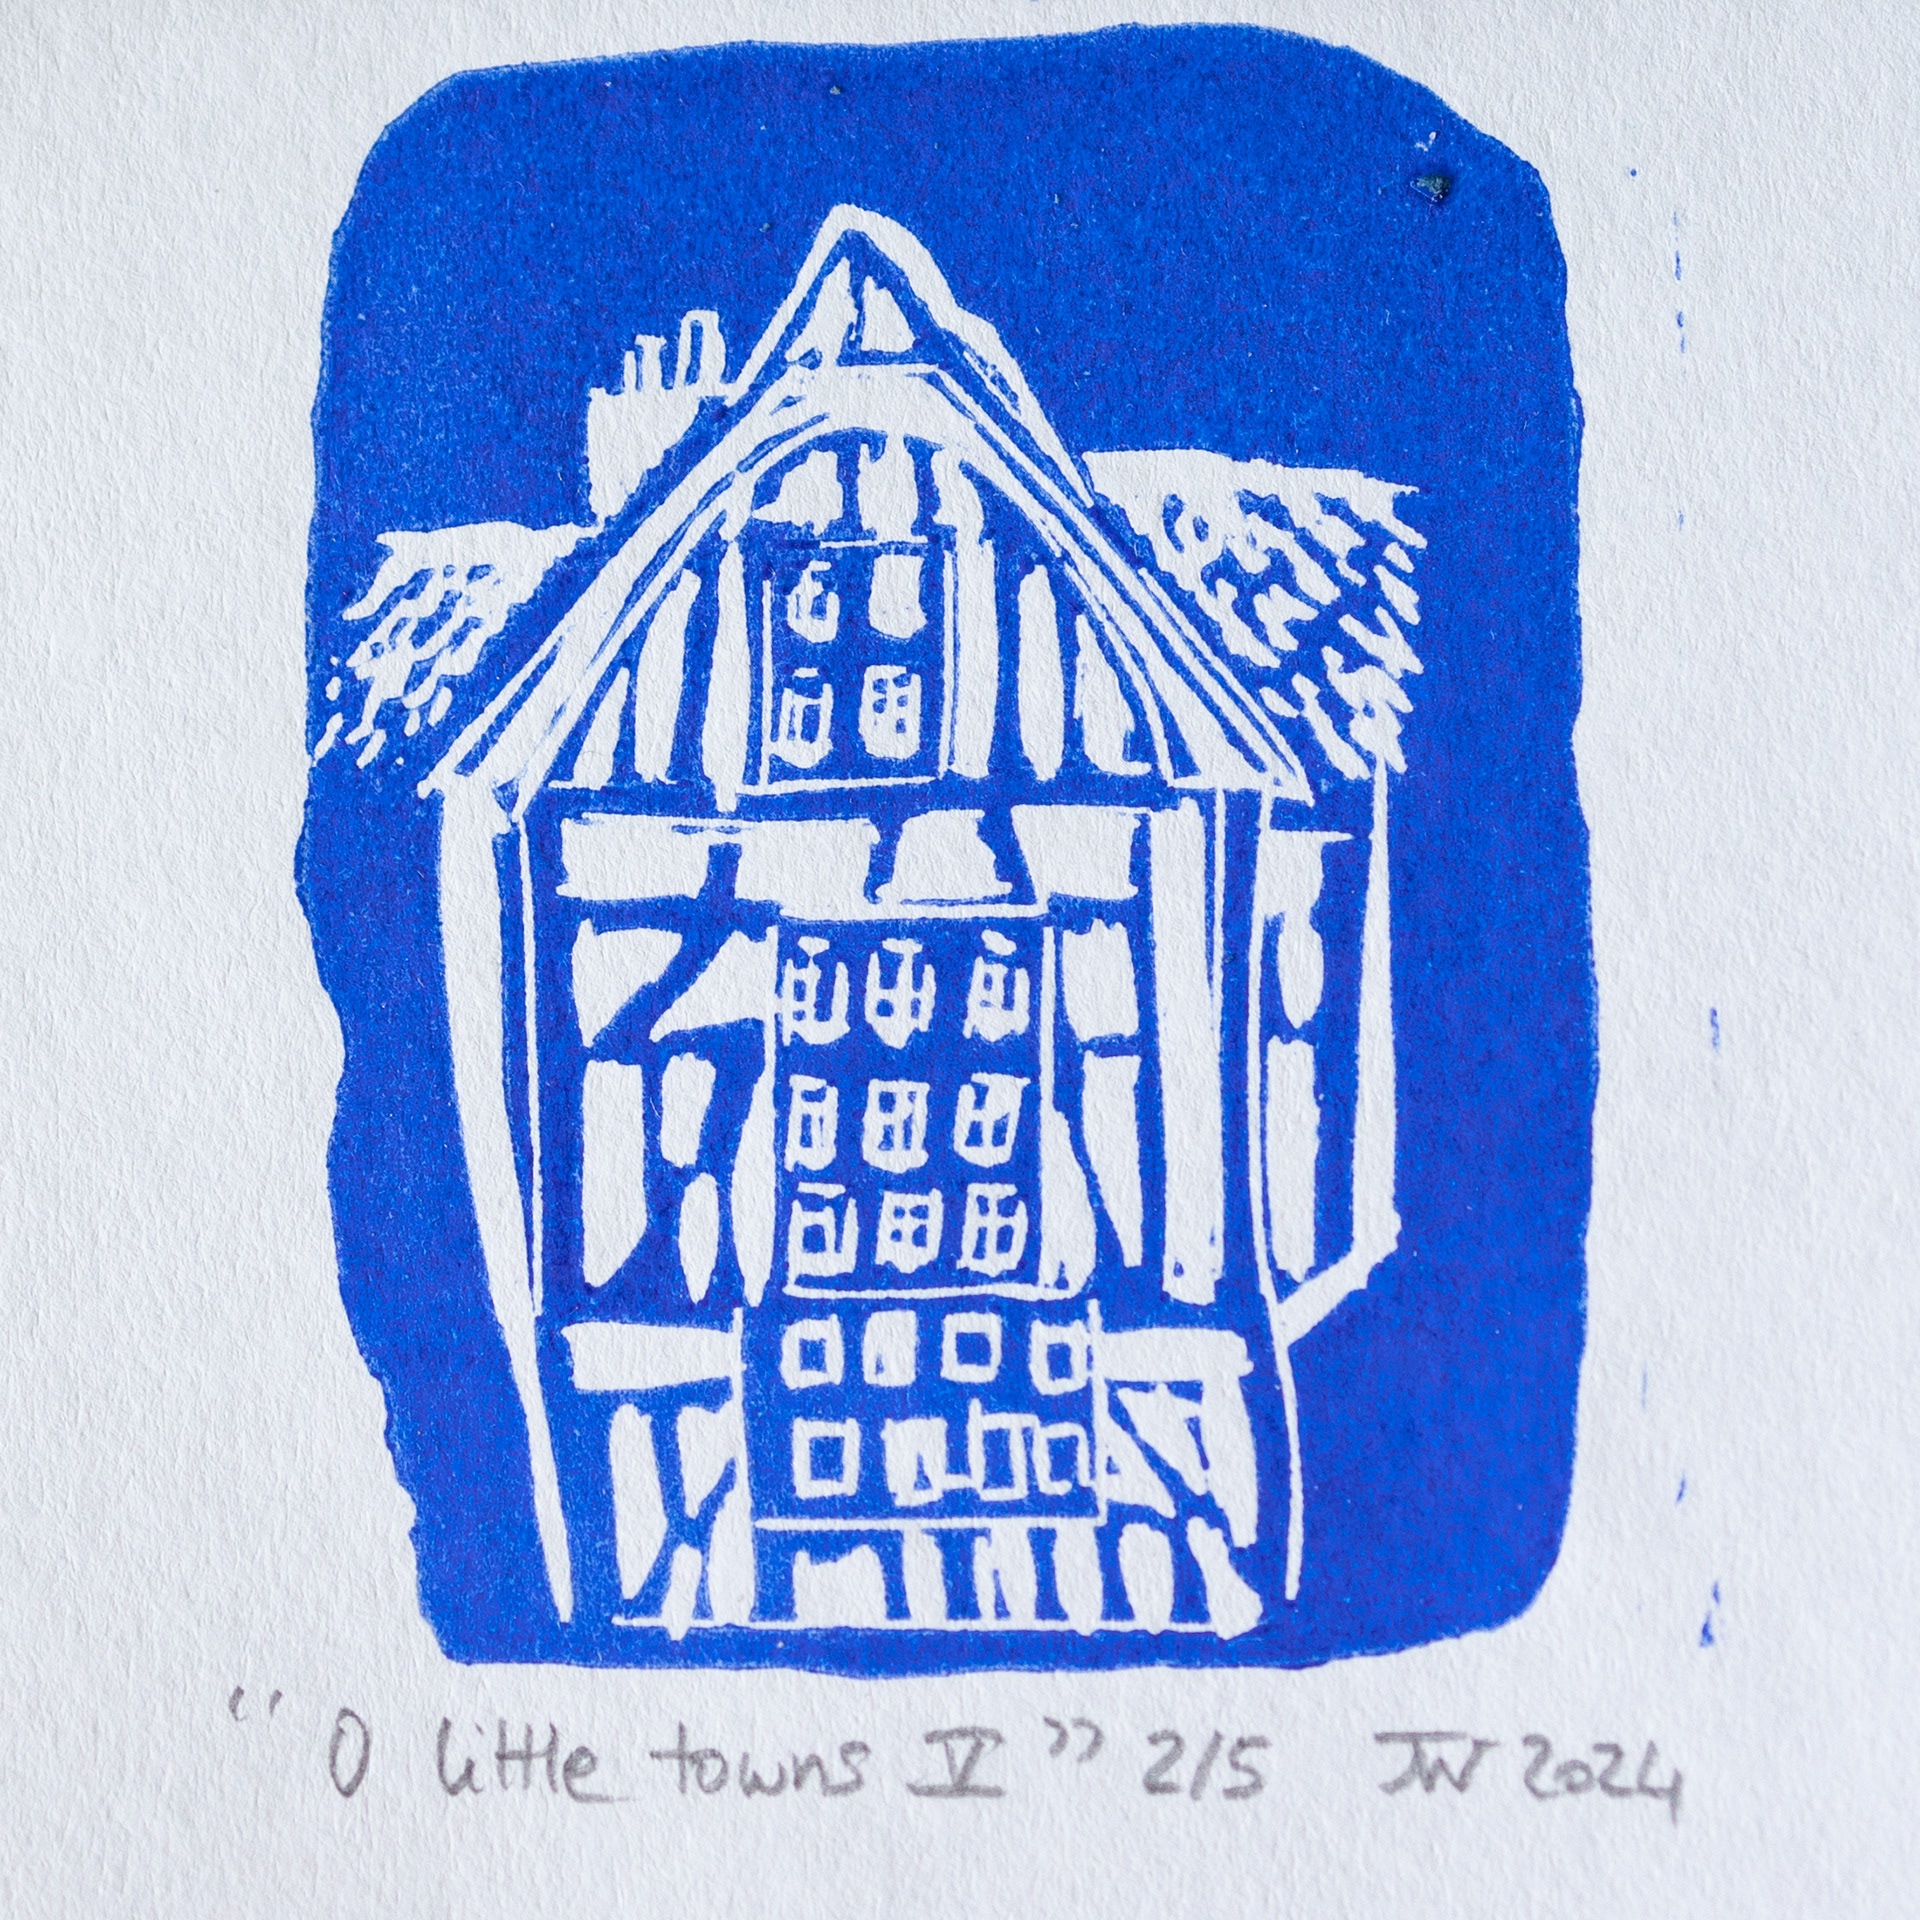 “O little towns V” 2/5 JW 2024